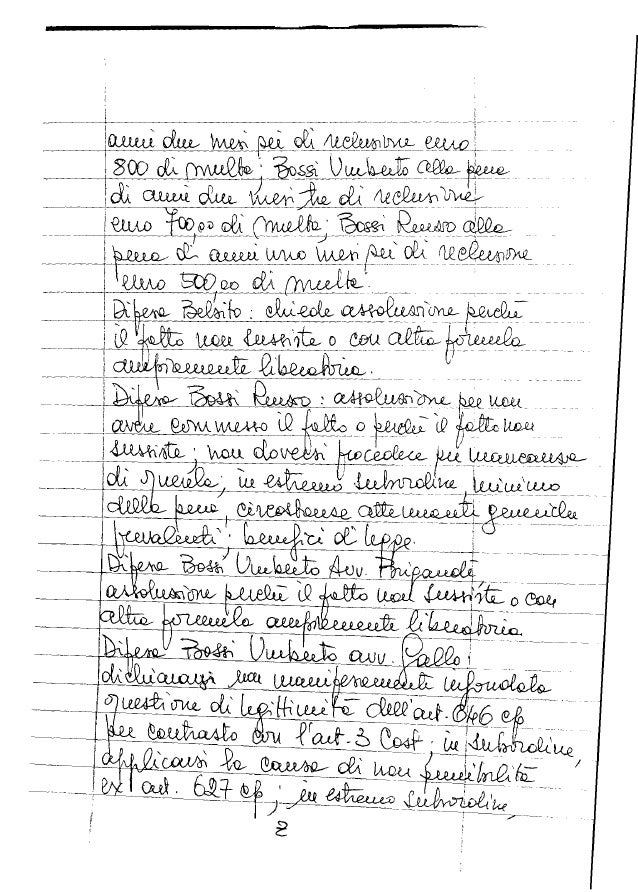 anni due mesi sei di reclusione euro
800 di multa; Bossi Umberto alla pena
di anni due mesi tre di reclusione
euro 700,00 di multa; Bossi Renzo alla
pena di anni uno mesi sei di reclusione
euro 500,00 di multa.
Difesa Belsito: chiede assoluzione perché
il fatto non sussiste o con altra formula
ampiamente liberatoria.
Difesa Bossi Renzo: assoluzione per non
aver commesso il fatto o perché il fatto non
sussiste; non doversi procedere per mancanza
di querela; in estremo subordine, minimo
della pena, circostanze attenuanti generiche
prevalenti; benefici di legge.
Difesa Bossi Umberto Avv. Brigandì,
assoluzione perché il fatto non sussiste o con
altra formula ampiamente liberatoria
Difesa Bossi Umberto avv. Gallo:
dichiararsi non manifestamente infondata
questione di legittimità dell'art. 646 cp
per contrasto con l'art. 3 Cost; in subordine,
applicarsi la causa di non punibilità
ex art. 627 cp; in estremo subordine,
2